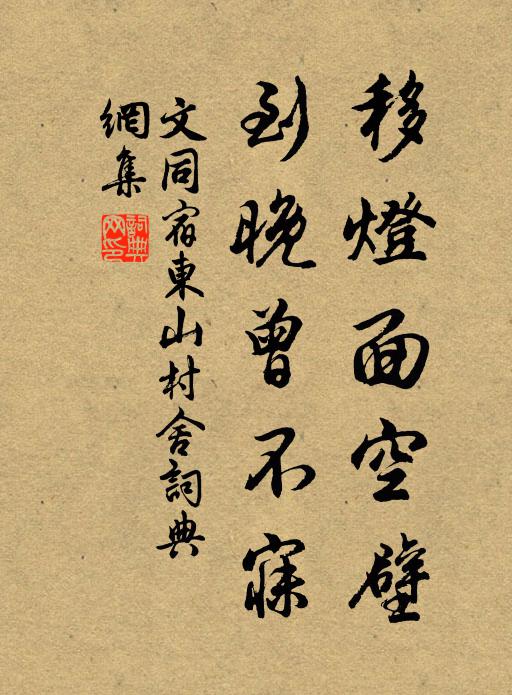 移燈面空壁
到晚曾不寐
文同宿東山村舍詞典
網集
詞典網印